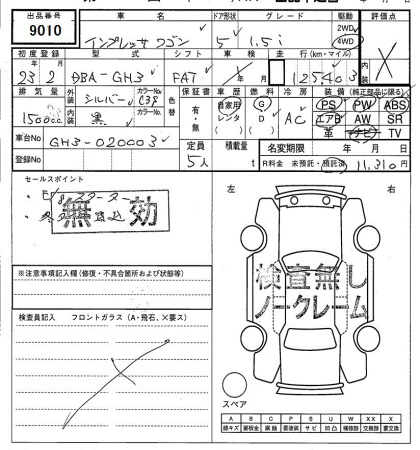 出品番号 車名 ドア形状 グレード 駆動 評価点
9010 インプレッサワゴン 5 1.5i 2WD 4WD
X
内装
初度登録 型式 シフト 車検 走行(km・マイル)
23年2月 DBA-GH3 FAT 年 月 125403
排気量 外装 シルバー カラーNo C38 色替 保証書 車歴 燃料 冷房 装備(純正部品に限る)
1500cc 内装 黒 カラーNo 有・無 自家用 レンタ ( ) G D ( ) A C PS PW ABS
エアB AW SR
革 ナビ TV
車台No GH3-020003
定員 積載量 名変期限 年 月 日
登録No 5人 t R料金 未預託・預託済 11,310円
セールスポイント
無効
左 右
※注意事項記入欄(修復・不具合箇所および状態等)
検査無し
ノークレーム
検査員記入 フロントガラス(A・飛石、X要ス)
スペア
A B C P S U W XX X
線キズ 要板金 腐蝕 要塗装 サビ 凹凸 補修跡 交換跡 要交換